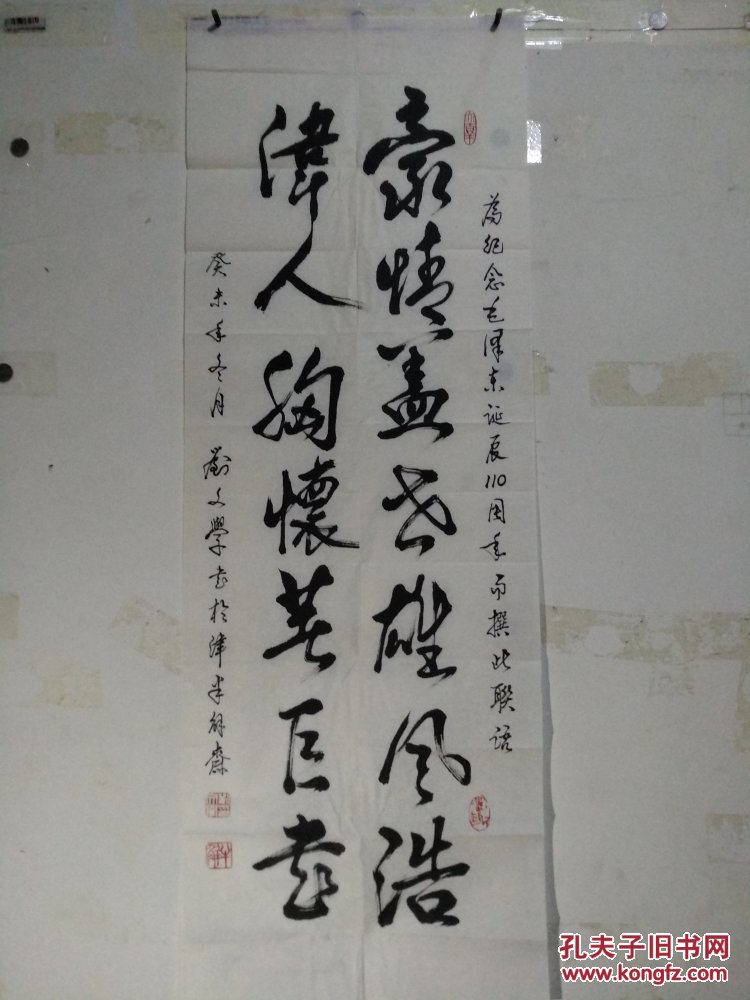 為紀念毛澤東诞辰110周年而撰此聯語
豪情蓋世雄风浩
偉人胸懷著巨書
癸未年冬月 劉文學書於津半解齋
孔夫子旧书网
www.kongfz.com